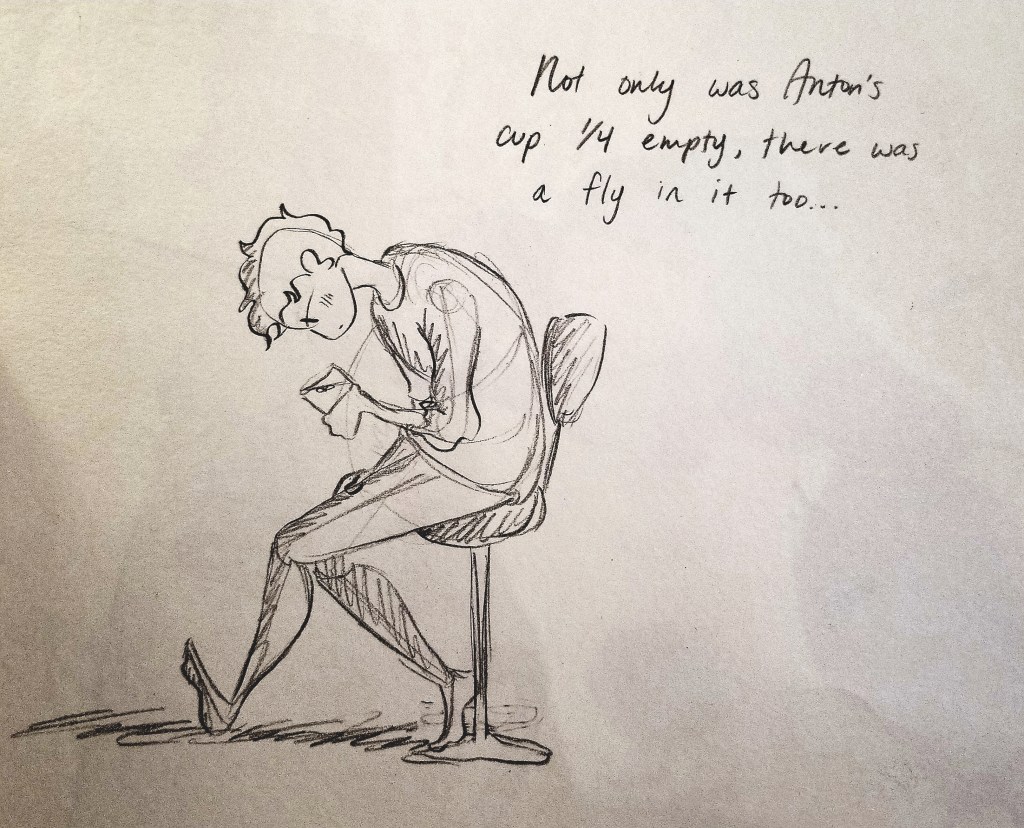 Not only was Anton's
cup 1/4 empty, there was
a fly in it too...